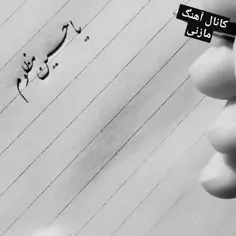 کانال آهنگ
مازنی
یا حسین مظلوم